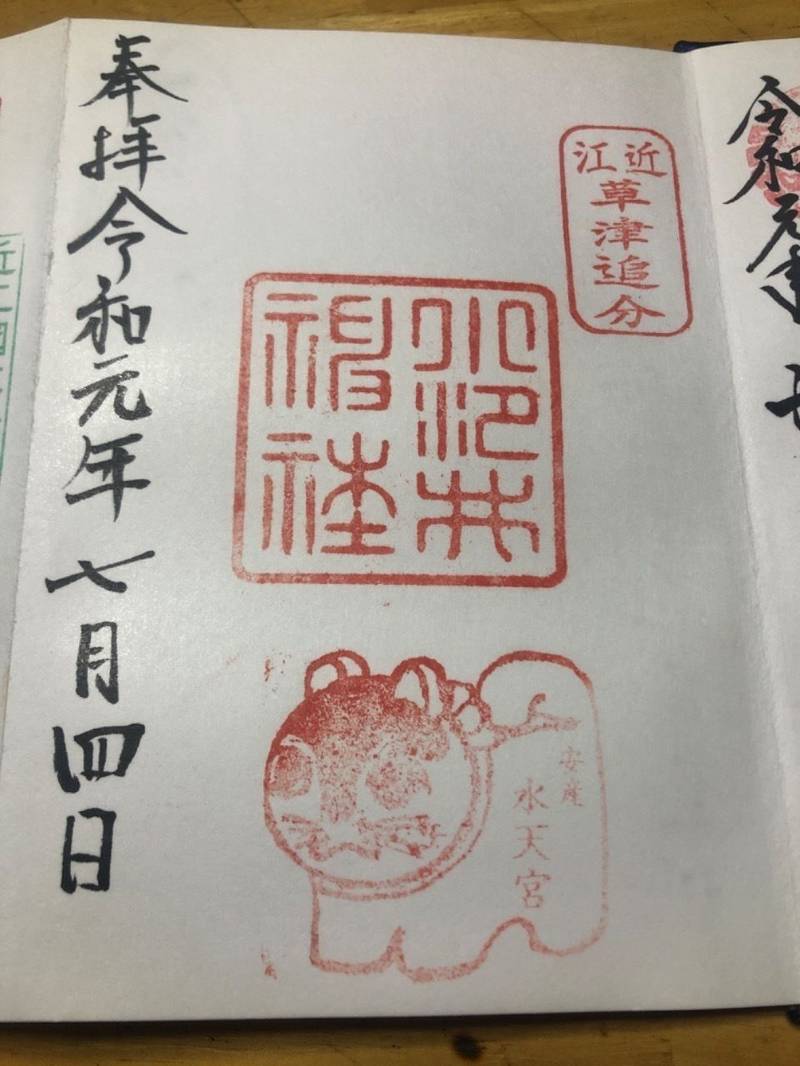 令和元年 七
近江草津追分
小汐井
神社
安産
水天宮
奉拝令和元年七月四日